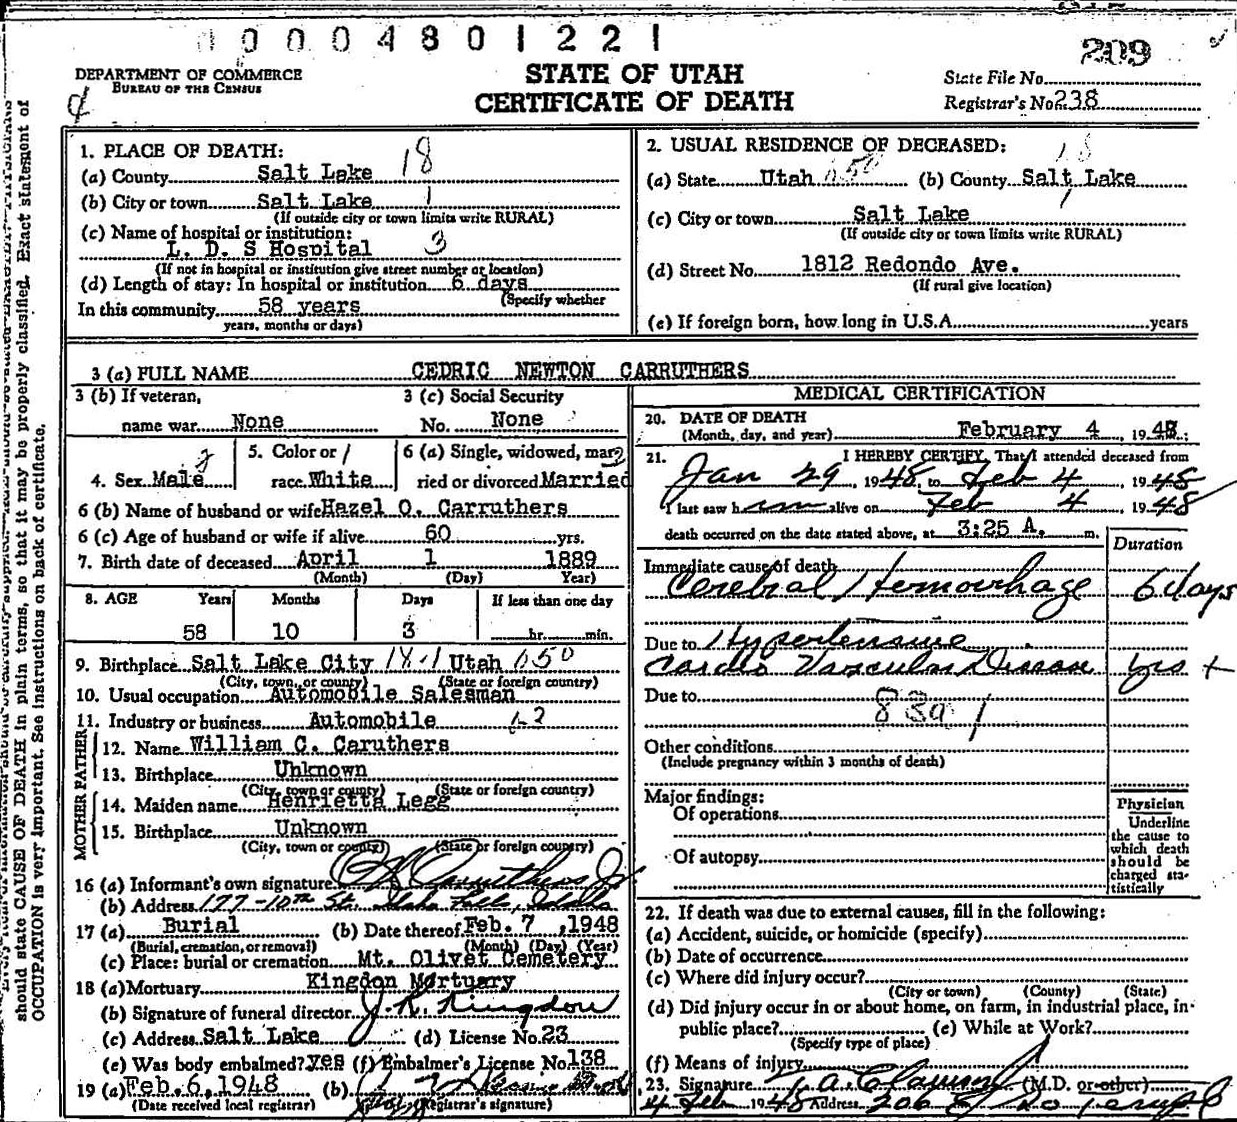 0 0 0 4 8 0 1 2 2 1
209
DEPARTMENT OF COMMERCE
BUREAU OF THE CENSUS
STATE OF UTAH
CERTIFICATE OF DEATH
State File No.
Registrar's No. 238
should state CAUSE OF DEATH in plain terms, so that it may be properly classified. Exact statement of
OCCUPATION is very important. See instructions on back of certificate.
1. PLACE OF DEATH: 18
(a) County Salt Lake
(b) City or town Salt Lake 1
(If outside city or town limits write RURAL)
(c) Name of hospital or institution:
L. D. S Hospital 3
(If not in hospital or institution give street number or location)
(d) Length of stay: In hospital or institution 6 days
(Specify whether
In this community 58 years
years, months or days)
2. USUAL RESIDENCE OF DECEASED: 18
(a) State Utah 050 (b) County Salt Lake
(c) City or town Salt Lake 1
(If outside city or town limits write RURAL)
(d) Street No. 1812 Redondo Ave.
(If rural give location)
(e) If foreign born, how long in U.S.A. years
3 (a) FULL NAME CEDRIC NEWTON CARRUTHERS
3 (b) If veteran, name war None
3 (c) Social Security No. None
4. Sex Male
5. Color or race White
6 (a) Single, widowed, married or divorced Married
6 (b) Name of husband or wife Hazel O. Carruthers
6 (c) Age of husband or wife if alive 60 yrs.
7. Birth date of deceased April 1 1889
(Month) (Day) Year)
8. AGE Years Months Days If less than one day
58 10 3 hr. min.
9. Birthplace Salt Lake City 18-1 Utah 050
(City, town, or county) (State or foreign country)
10. Usual occupation Automobile Salesman
11. Industry or business Automobile
FATHER
12. Name William C. Caruthers
13. Birthplace Unknown
(City, town or county) (State or foreign country)
MOTHER
14. Maiden name Henrietta Legg
15. Birthplace Unknown
(City, town or county) (State or foreign country)
16 (a) Informant's own signature Carruthers Jr
(b) Address 177-10th St. Idaho Falls, Idaho
17 (a) Burial (b) Date thereof Feb. 7 ,1948
(Burial, cremation, or removal) (Month) (Day) (Year)
(c) Place: burial or cremation Mt. Olivet Cemetery
18 (a) Mortuary Kingdon Mortuary
(b) Signature of funeral director J. R. Kingdon
(c) Address Salt Lake (d) License No. 23
(e) Was body embalmed? yes (f) Embalmer's License No. 138
19 (a) Feb. 6, 1948 (b)
(Date received local registrar) (Registrar's signature)
MEDICAL CERTIFICATION
20. DATE OF DEATH
(Month, day, and year) February 4 , 1948;
21. I HEREBY CERTIFY, That I attended deceased from
Jan 29 , 1948, to Feb 4 , 1948
I last saw him alive on Feb 4 , 1948
death occurred on the date stated above, at 3:25 A. m.
Duration
Immediate cause of death
Cerebral Hemorrhage 6 days
Due to Hypertensive
Cardio Vascular Disease yrs +
Due to
83a 1
Other conditions
(Include pregnancy within 3 months of death)
Major findings:
Of operations
Of autopsy
Physician
Underline
the cause to
which death
should be
charged sta-
tistically
22. If death was due to external causes, fill in the following:
(a) Accident, suicide, or homicide (specify)
(b) Date of occurrence
(c) Where did injury occur?
(City or town) (County) (State)
(d) Did injury occur in or about home, on farm, in industrial place, in
public place? (e) While at Work?
(Specify type of place)
(f) Means of injury
23. Signature (M.D. or other)
4 Feb 1948 Address 206 E So Temple